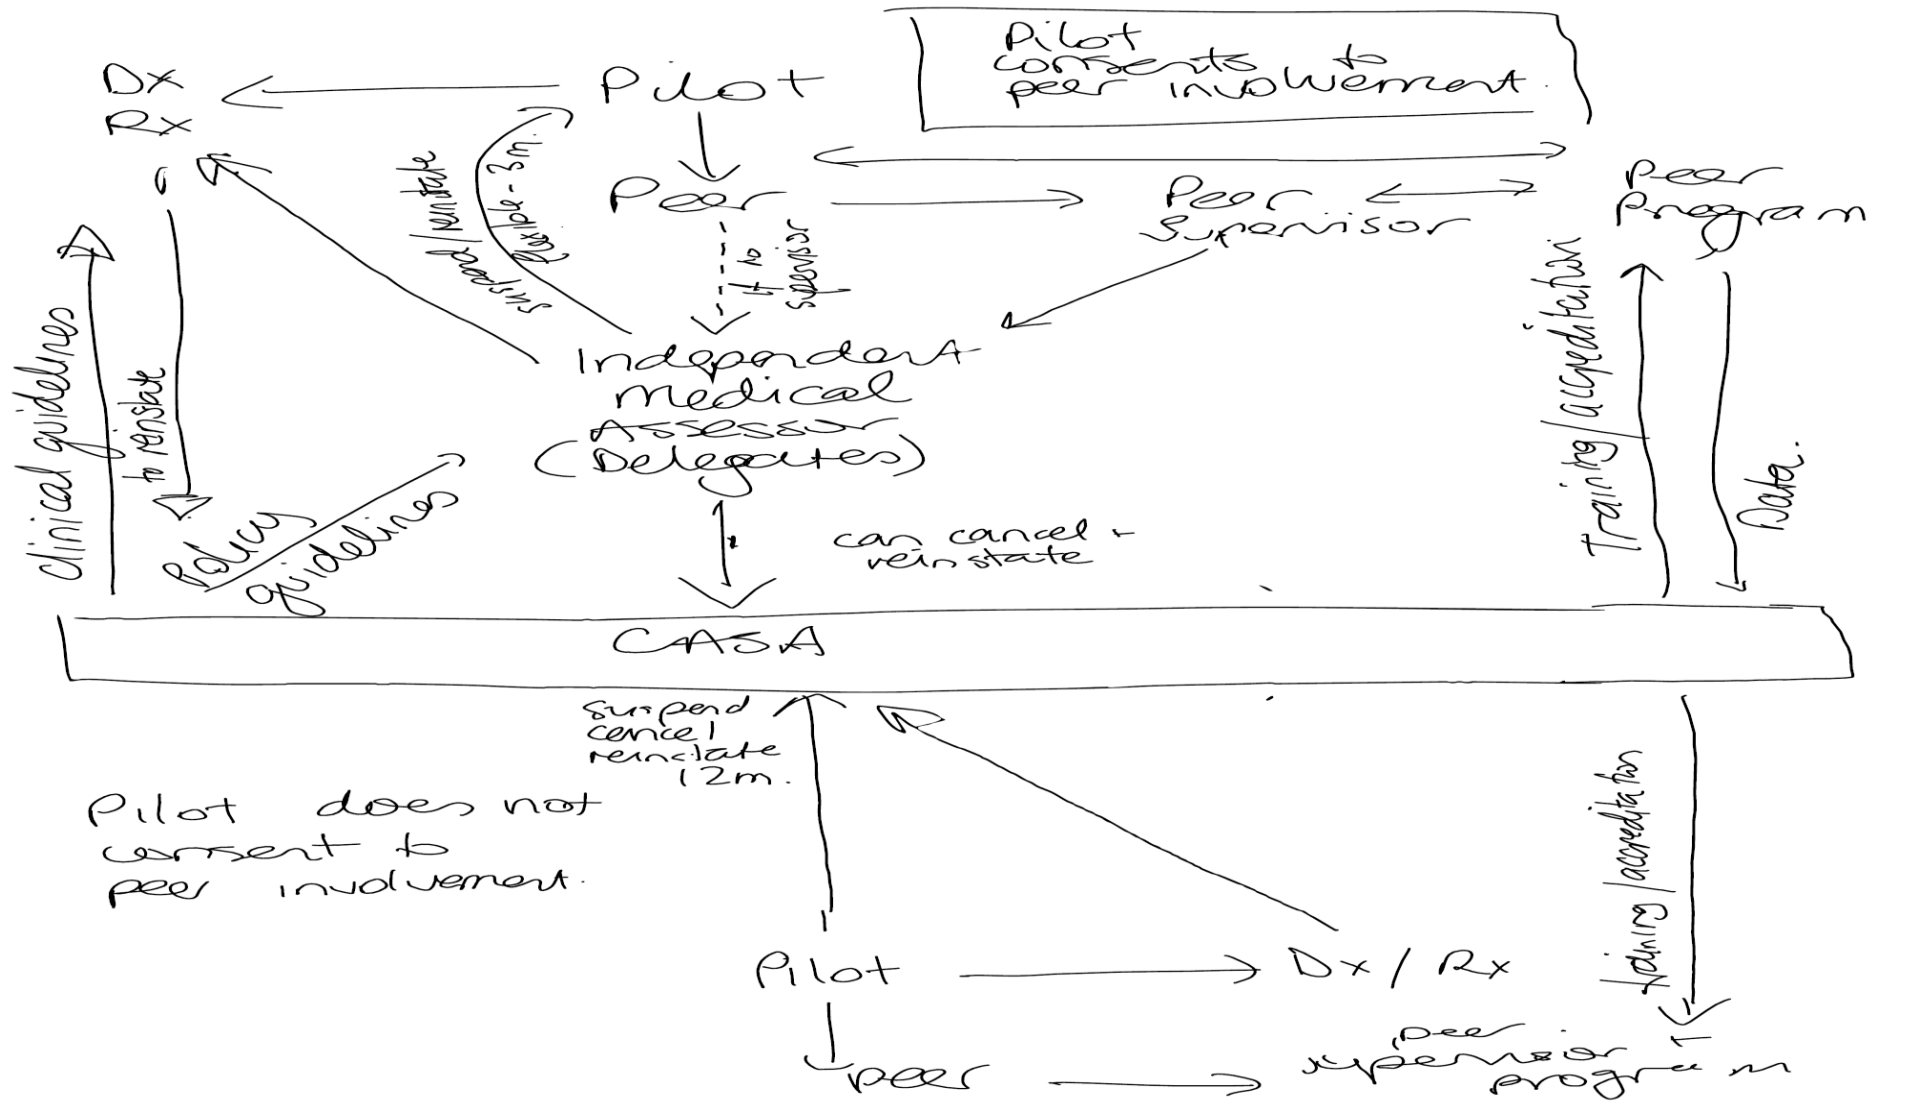 Pilot
consents to
peer involvement.
Dx
Rx
Pilot
Peer
Peer
Supervisor
Peer
Program
suspend/reinstate
flexible - 3m.
supervisor
Independent
Medical
Assessor
(Delegates)
clinical guidelines
to reinstate
Policy
guidelines
can cancel +
reinstate
Training/accreditation
Data.
CASA
suspend
cancel
reinstate
12m.
Pilot does not
consent to
peer involvement.
Pilot
Dx / Rx
training/accreditation
peer
peer
supervisor
program